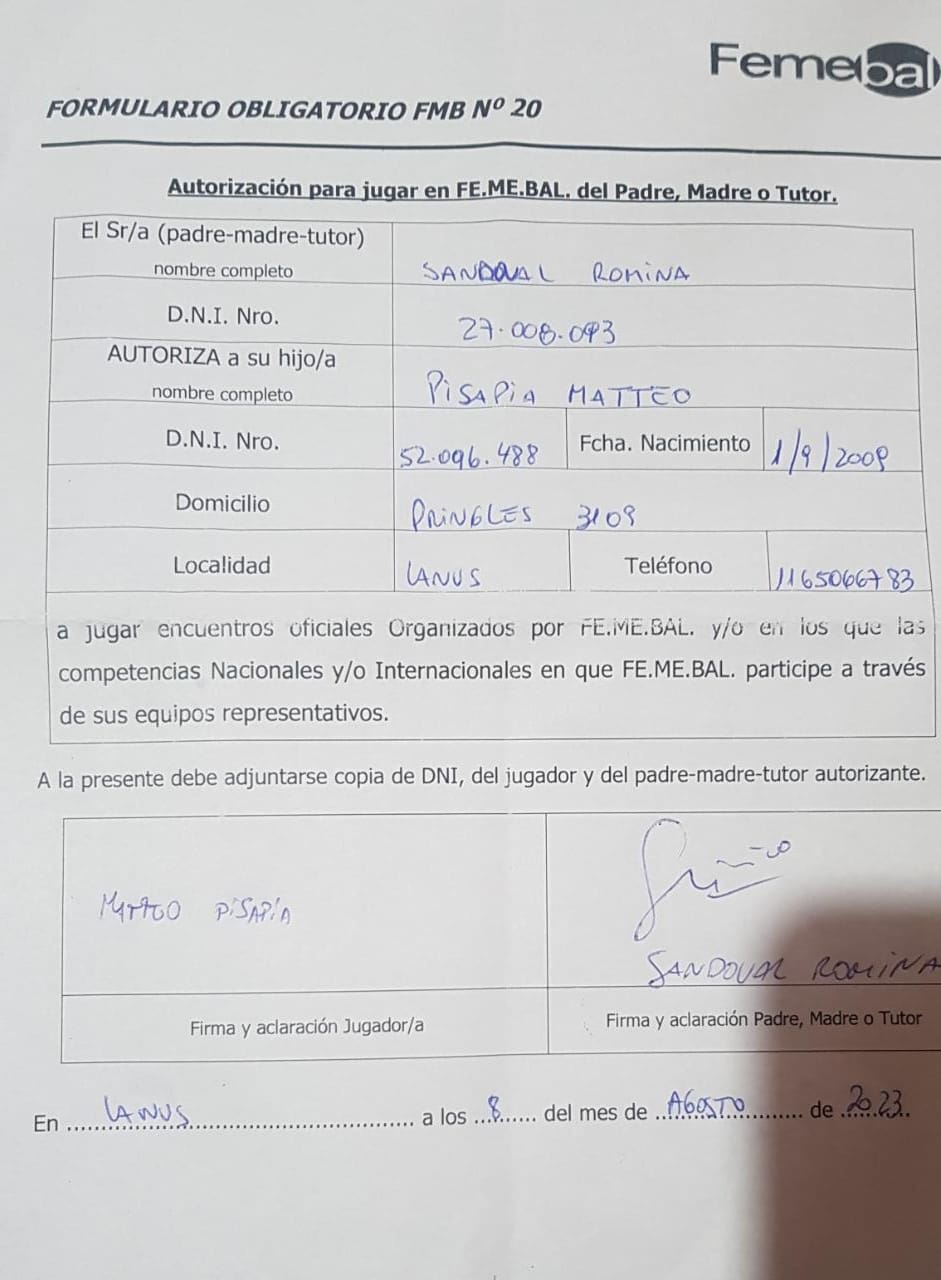 Femebal
FORMULARIO OBLIGATORIO FMB Nº 20
Autorización para jugar en FE.ME.BAL. del Padre, Madre o Tutor.
El Sr/a (padre-madre-tutor)
nombre completo SANDOVAL ROMINA
D.N.I. Nro. 27.008.093
AUTORIZA a su hijo/a
nombre completo PISAPIA MATTEO
D.N.I. Nro. 52.096.488 Fcha. Nacimiento 1/9/2009
Domicilio PRINGLES 3109
Localidad LANUS Teléfono 1165066783
a jugar encuentros oficiales Organizados por FE.ME.BAL. y/o en los que las
competencias Nacionales y/o Internacionales en que FE.ME.BAL. participe a través
de sus equipos representativos.
A la presente debe adjuntarse copia de DNI, del jugador y del padre-madre-tutor autorizante.
MATTEO PISAPIA
SANDOVAL ROMINA
Firma y aclaración Jugador/a Firma y aclaración Padre, Madre o Tutor
En LANUS a los 8 del mes de AGOSTO de 2023.